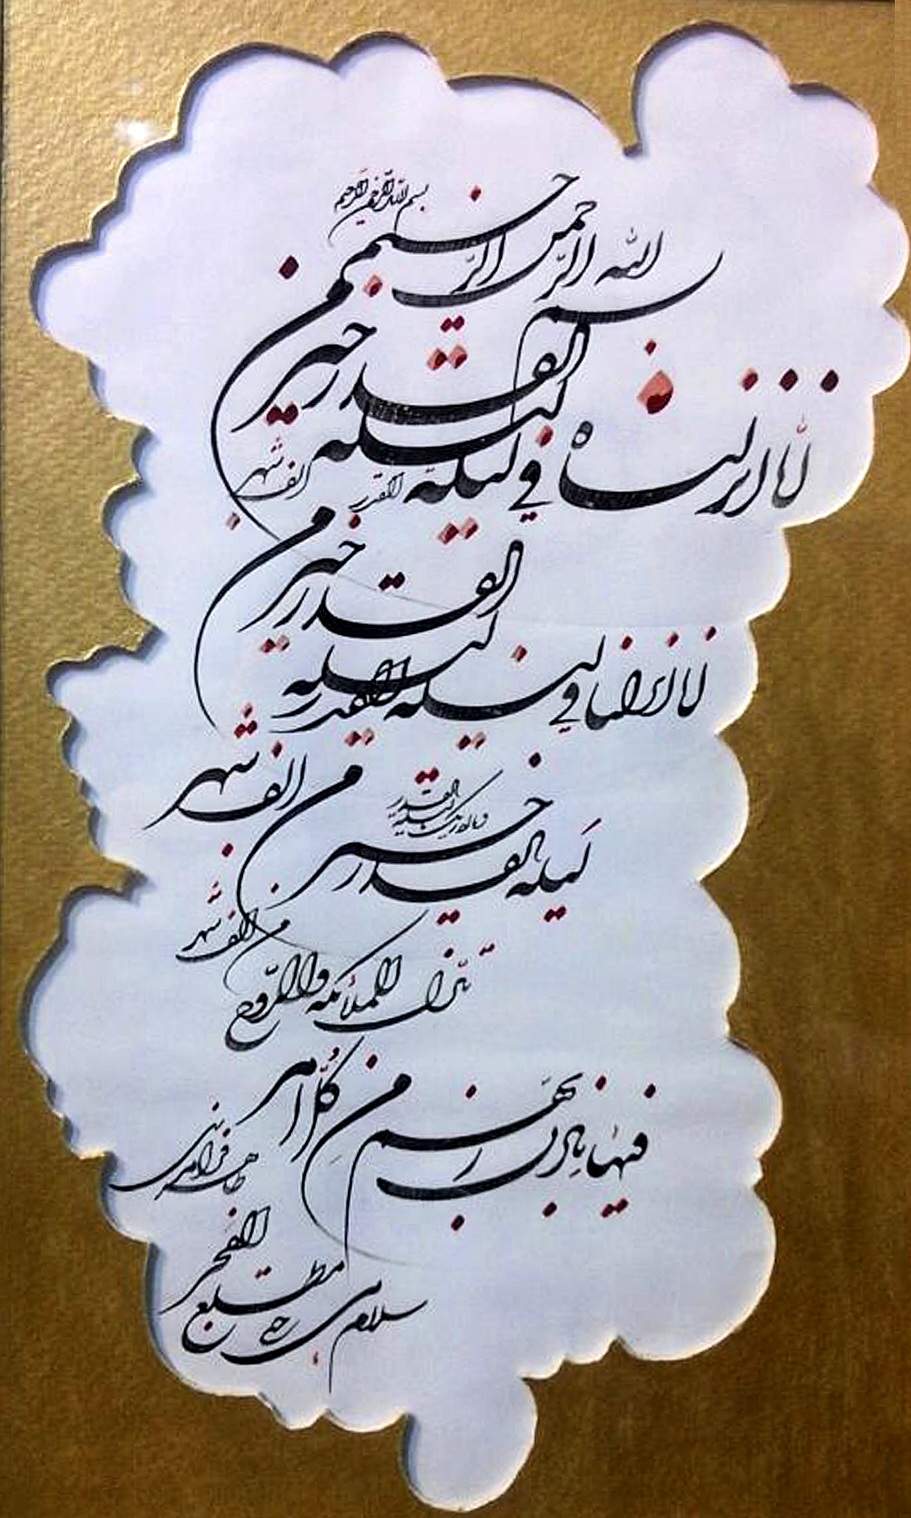 بسم الله الرحمن الرحیم
بسم الله الرحمن الرحیم
انا انزلناه فی لیلة القدر
لیلة القدر خیر من
الف شهر
انا انزلنا فی لیلة القدر
لیلة القدر خیر من الف شهر
وما ادریک ما لیلة القدر
لَیلة القدر خیر من الف شهر
تنزّل الملائکة والرّوح
فیها باذن ربهّم من کُلّ امر
سلام هی حتی مطلع الفجر